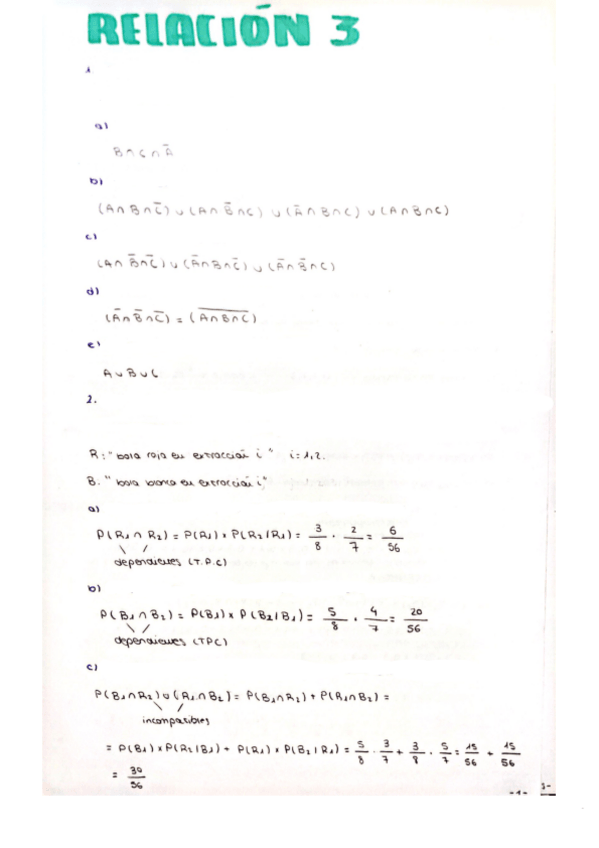 RELACIÓN 3
1
a)
B ∩ C ∩ A̅
b)
(A ∩ B ∩ C̅) ∪ (A ∩ B̅ ∩ C) ∪ (A̅ ∩ B ∩ C) ∪ (A ∩ B ∩ C)
c)
(A ∩ B̅ ∩ C̅) ∪ (A̅ ∩ B ∩ C̅) ∪ (A̅ ∩ B̅ ∩ C)
d)
(A̅ ∩ B̅ ∩ C̅) = (A̅ ∩̅ B̅ ∩̅ C̅)
e)
A ∪ B ∪ C
2.
R: "bola roja en extracción i" i = 1,2.
B. "bola blanca en extracción i"
a)
P(R₁ ∩ R₂) = P(R₁) × P(R₂/R₁) = 3/8 · 2/7 = 6/56
dependientes (T.P.C)
b)
P(B₁ ∩ B₂) = P(B₁) × P(B₂/B₁) = 5/8 · 4/7 = 20/56
dependientes (TPC)
c)
P(B₁∩R₂) ∪ (R₁∩B₂) = P(B₁∩R₂) + P(R₁∩B₂) =
incompatibles
= P(B₁) × P(R₂/B₁) + P(R₁) × P(B₂/R₁) = 5/8 · 3/7 + 3/8 · 5/7 = 15/56 + 15/56
= 30/56
-1-